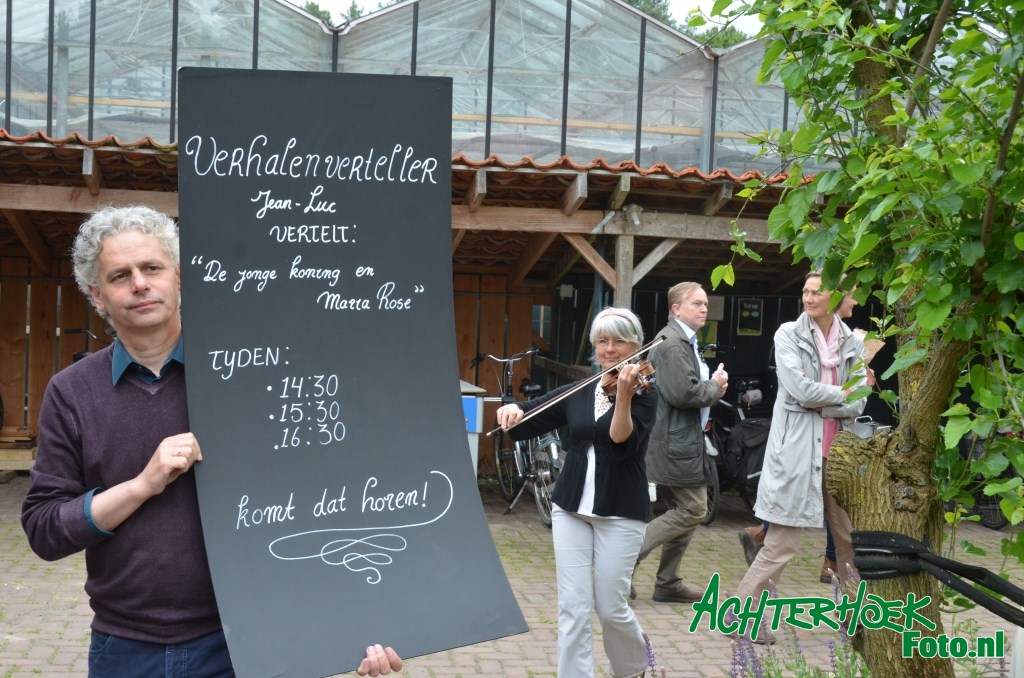 Verhalenverteller
Jean-Luc
VERTELT:
"De jonge koning en
Maria Rose"
TYDEN:
• 14:30
• 15:30
• 16:30
komt dat horen!
ACHTERHOEK
FOTO.nl